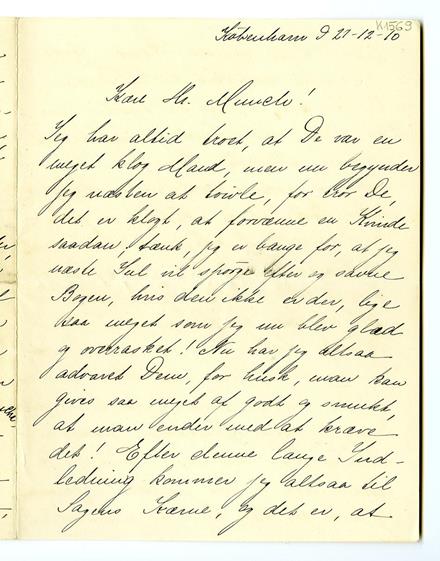 K1569
København d 21-12-10
Kære Hr. Munch!
Jeg har altid troet, at De var en
meget klog Mand, men nu begynder
jeg næsten at tvivle, for tror De,
det er klogt, at forvænne en Kvinde
saadan, tænk, jeg er bange for, at jeg
næste Jul vil spørge efter og savne
Bogen, hvis den ikke er der, lige
saa meget som jeg nu blev glad
og overrasket! Nu har jeg altsaa
advaret Dem, for husk, man kan
gives saa meget af godt og smukt,
at man ender med at kræve
det! Efter denne lange Ind-
ledning kommer jeg altsaa til
Sagens Kærne, og det er, at